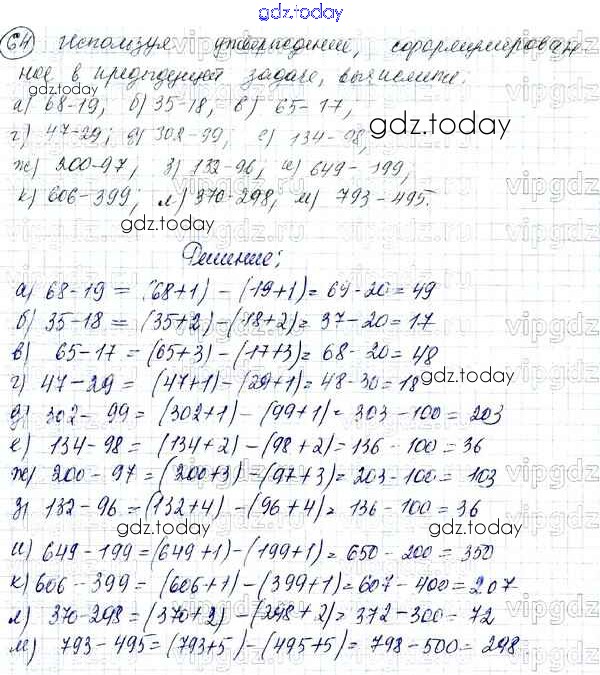 gdz.today
64 Используя утверждение, сформулирован
ное в предыдущей задаче, вычислите:
а) 68-19; б) 35-18; в) 65-17;
gdz.today
г) 47-29; д) 302-99; е) 134-98;
ж) 200-97; з) 132-96; и) 649-199;
gdz.today
к) 606-399; л) 370-298; м) 793-495.
gdz.today
Решение:
а) 68-19 = (68+1) - (19+1) = 69-20 = 49
б) 35-18 = (35+2) - (18+2) = 37-20 = 17
в) 65-17 = (65+3) - (17+3) = 68-20 = 48
г) 47-29 = (47+1) - (29+1) = 48-30 = 18
gdz.today
д) 302-99 = (302+1) - (99+1) = 303-100 = 203
е) 134-98 = (134+2) - (98+2) = 136-100 = 36
ж) 200-97 = (200+3) - (97+3) = 203-100 = 103
з) 132-96 = (132+4) - (96+4) = 136-100 = 36
gdz.today gdz.today
и) 649-199 = (649+1) - (199+1) = 650-200 = 350
к) 606-399 = (606+1) - (399+1) = 607-400 = 207
л) 370-298 = (370+2) - (298+2) = 372-300 = 72
м) 793-495 = (793+5) - (495+5) = 798-500 = 298
gdz.today